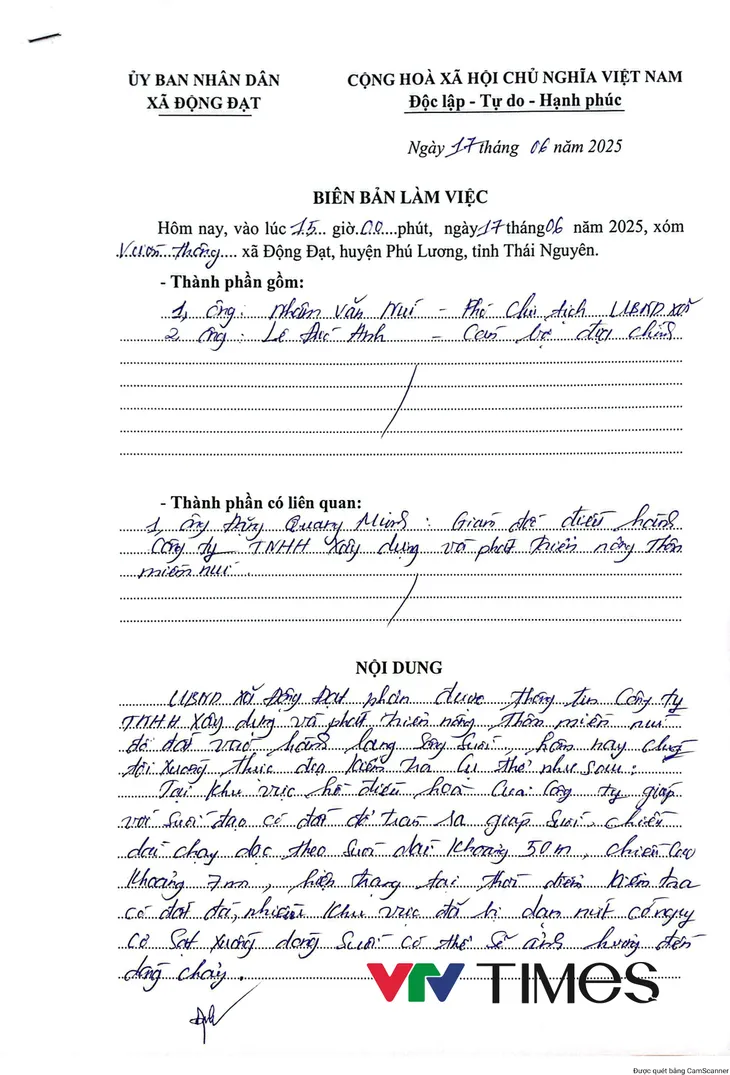 ỦY BAN NHÂN DÂN
XÃ ĐỘNG ĐẠT
CỘNG HOÀ XÃ HỘI CHỦ NGHĨA VIỆT NAM
Độc lập - Tự do - Hạnh phúc
Ngày 17 tháng 06 năm 2025
BIÊN BẢN LÀM VIỆC
Hôm nay, vào lúc 15 giờ 00 phút, ngày 17 tháng 06 năm 2025, xóm
Vườn Thông xã Động Đạt, huyện Phú Lương, tỉnh Thái Nguyên.
- Thành phần gồm:
1, ông: Nhâm Văn Núi - Phó Chủ tịch UBND xã
2, ông: Lê Đức Anh - Cán bộ địa chính
- Thành phần có liên quan:
1, ông Quang Minh: Giám đốc điều hành
Công ty TNHH Xây dựng và phát triển nông thôn
miền núi.
NỘI DUNG
UBND xã Động Đạt được thông tin Công ty
TNHH Xây dựng và phát triển nông thôn miền núi
đổ đất vào hành lang sông suối, hôm nay chúng
tôi xuống thực địa kiểm tra cụ thể như sau:
Tại khu vực hồ điều hoà của công ty giáp
với suối có đất đổ tràn ra giáp suối, chiều
dài chạy dọc theo suối dài khoảng 50m, chiều cao
khoảng 7m, hiện trạng tại thời điểm kiểm tra
có đất đá, nhiều khu vực đã bị dạn nứt có nguy
cơ sạt xuống dòng suối có thể sẽ ảnh hưởng đến
dòng chảy.
VTV TIMES
Được quét bằng CamScanner